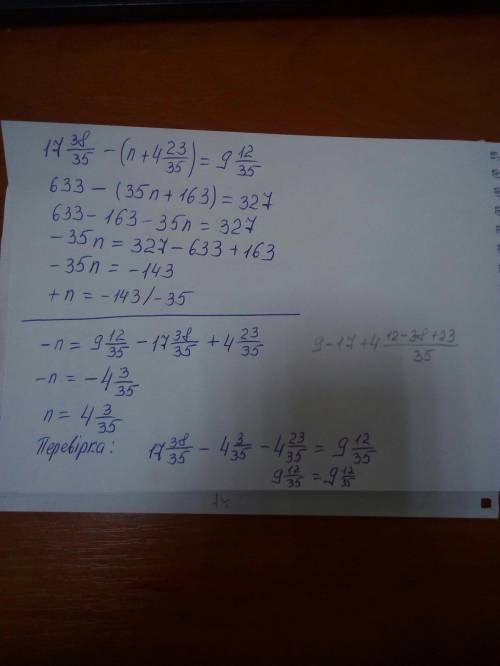 17 38/35 - (n + 4 23/35) = 9 12/35
633 - (35n + 163) = 327
633 - 163 - 35n = 327
-35n = 327 - 633 + 163
-35n = -143
+n = -143/-35
-n = 9 12/35 - 17 38/35 + 4 23/35
9 - 17 + 4 12-38+23/35
-n = -4 3/35
n = 4 3/35
Перевірка: 17 38/35 - 4 3/35 - 4 23/35 = 9 12/35
9 12/35 = 9 12/35